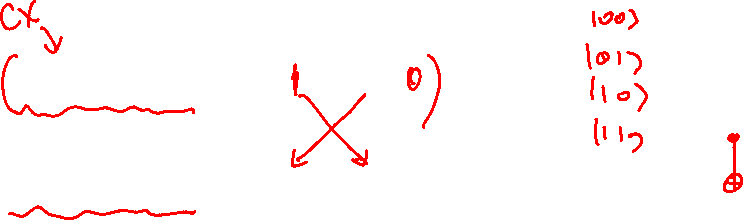 CX
( 1 0 )
|00⟩
|01⟩
|10⟩
|11⟩